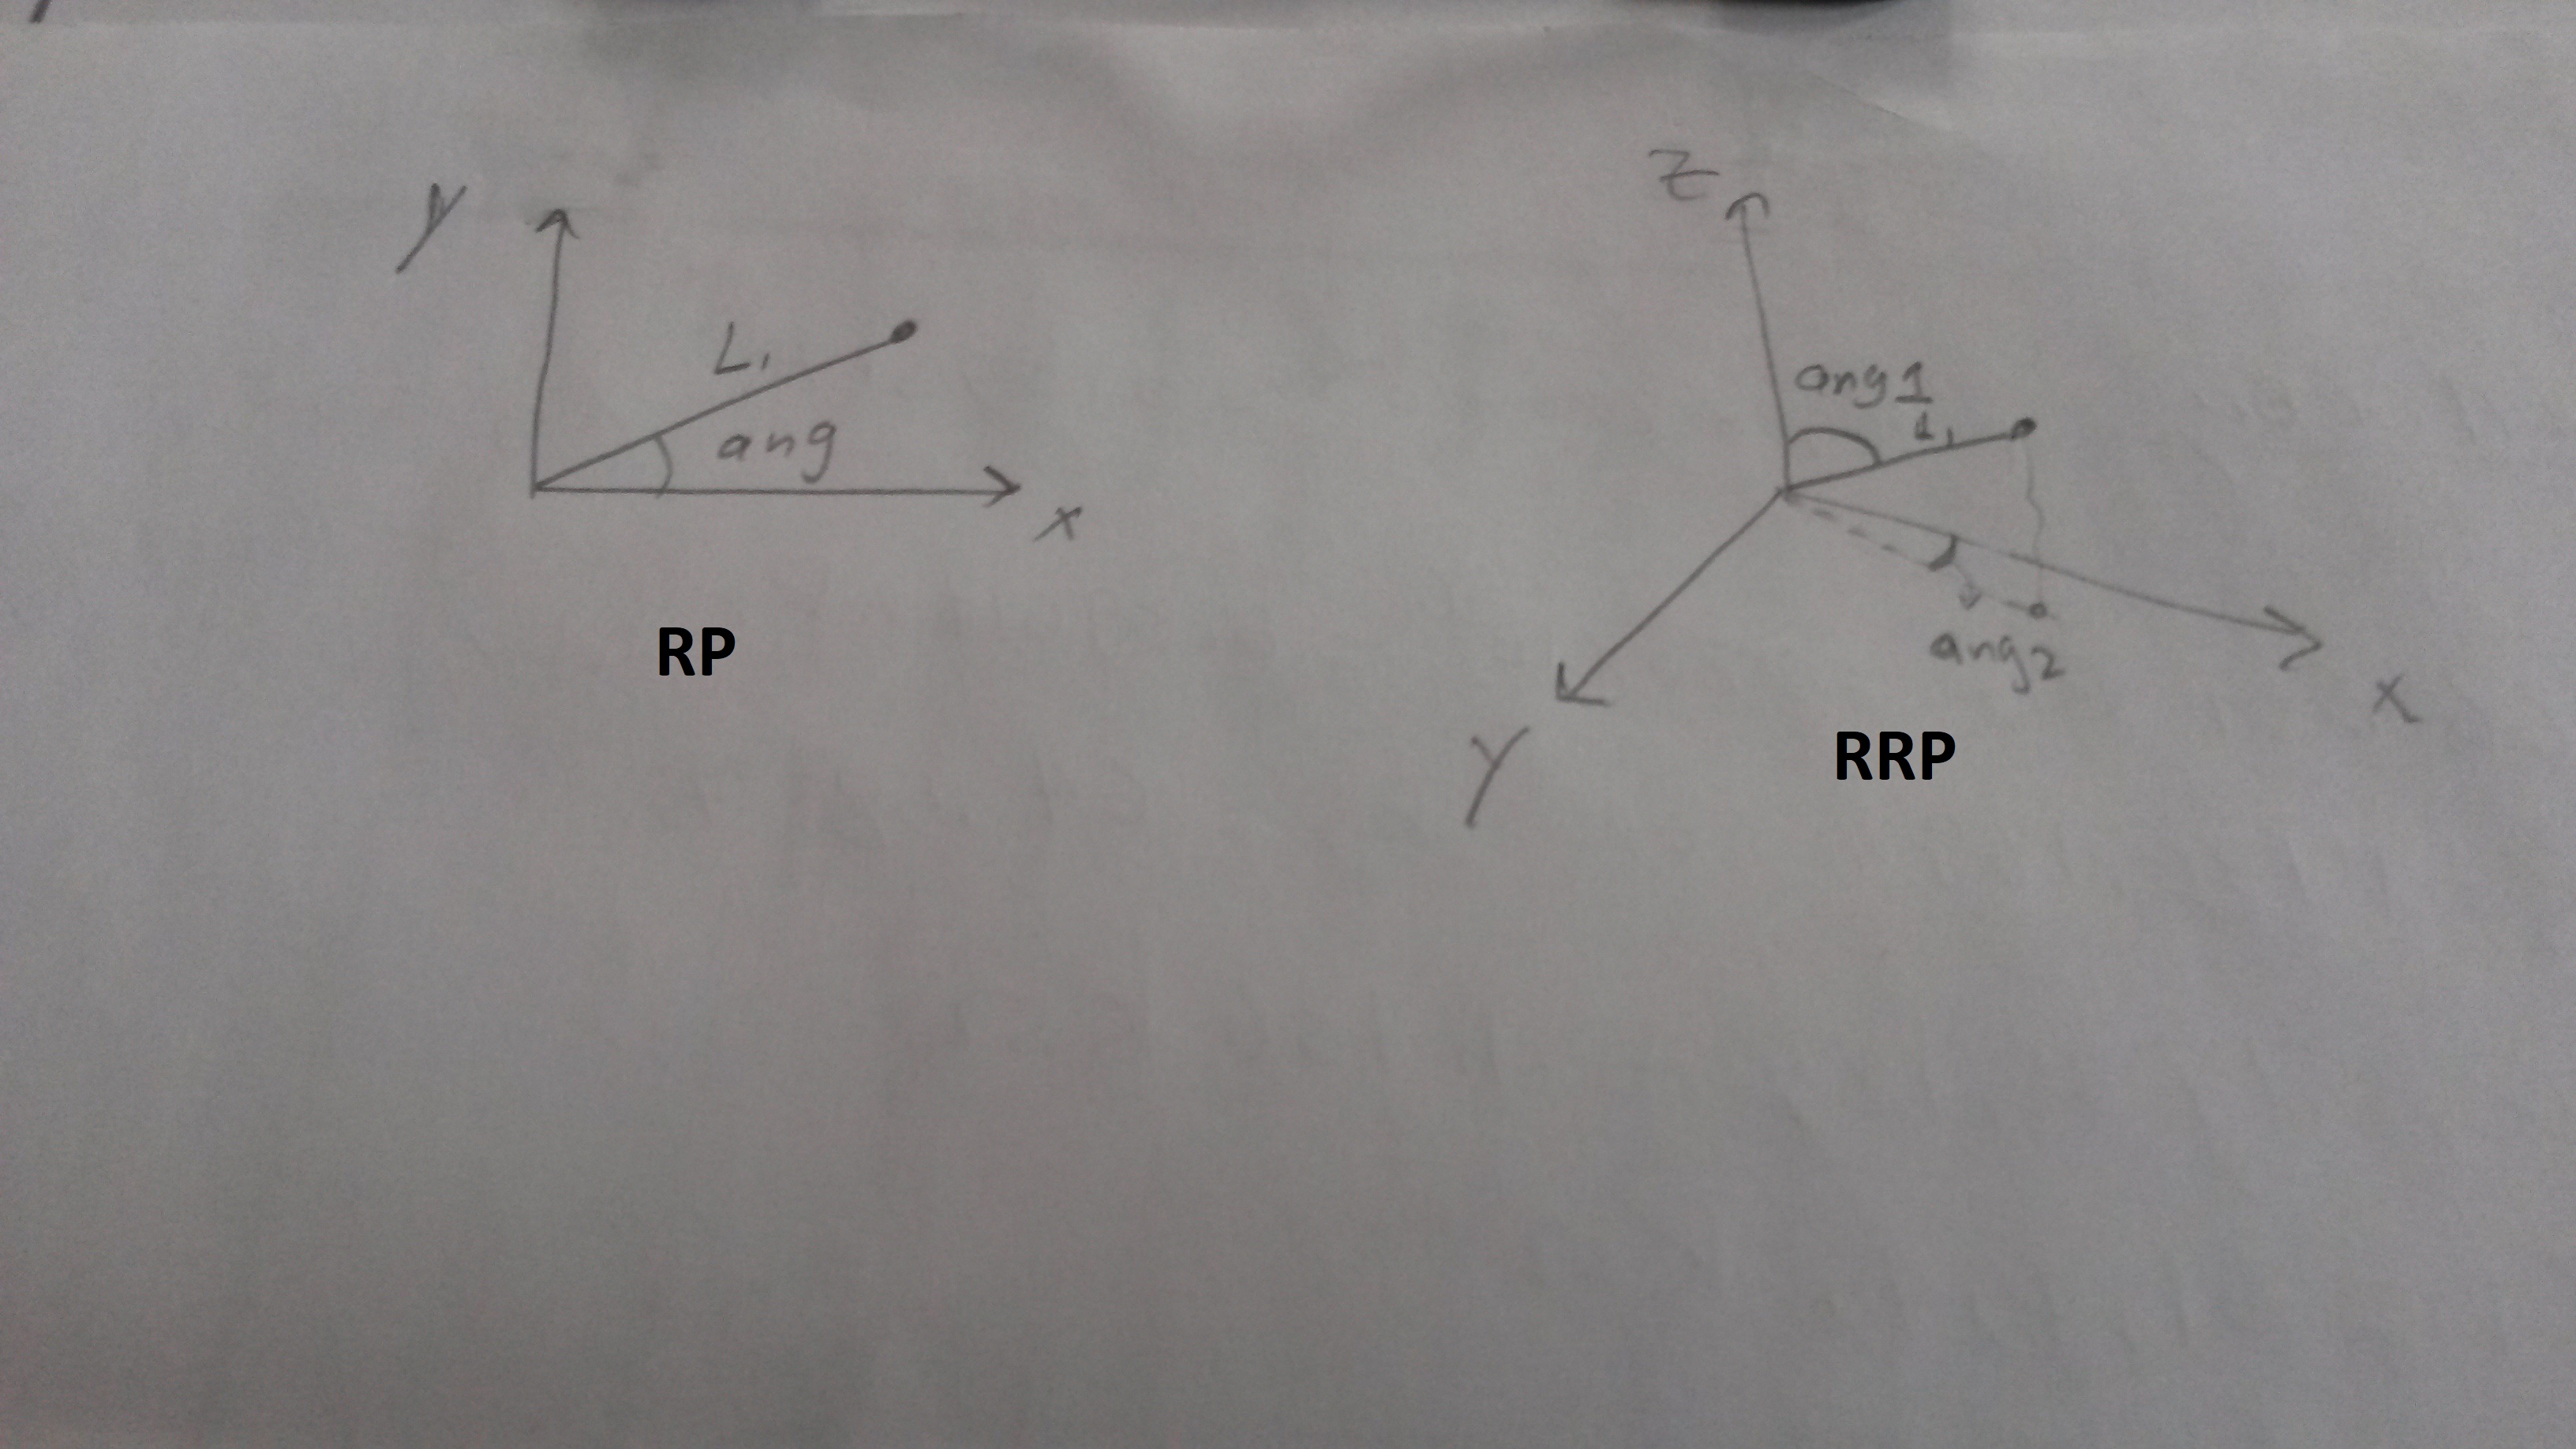 y
L₁
ang
x
RP
Z
ang1
L₁
ang2
x
y
RRP